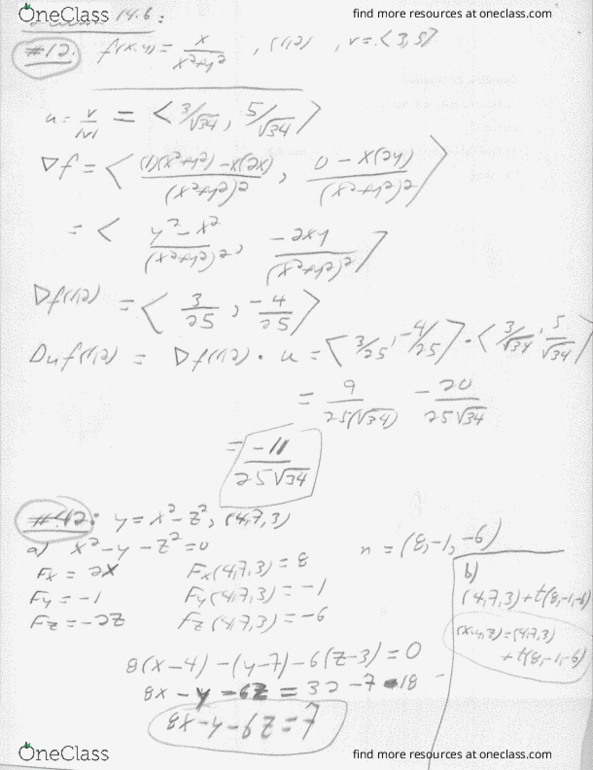 OneClass
find more resources at oneclass.com
14.6:
#12. f(x,y) = x/(x²+y²) , (1,2) , v = <3,5>
u = v/|v| = <3/√34, 5/√34>
∇f = <((1)(x²+y²) - x(2x))/(x²+y²)², (0 - x(2y))/(x²+y²)²>
= <(y² - x²)/(x²+y²)², -2xy/(x²+y²)²>
∇f(1,2) = <3/25, -4/25>
Duf(1,2) = ∇f(1,2) · u = <3/25, -4/25> · <3/√34, 5/√34>
= 9/25(√34) - 20/25√34
= -11/25√34
#42: y = x² - z², (4,7,3)
a) x² - y - z² = 0
n = (8,-1,-6)
Fx = 2x Fx(4,7,3) = 8
Fy = -1 Fy(4,7,3) = -1
Fz = -2z Fz(4,7,3) = -6
8(x-4) - (y-7) - 6(z-3) = 0
8x - y - 6z = 32 - 7 - 18
8x - y - 6z = 7
b)
(4,7,3) + t(8,-1,-6)
(x,y,z) = (4,7,3)
+ t(8,-1,-6)
OneClass
find more resources at oneclass.com